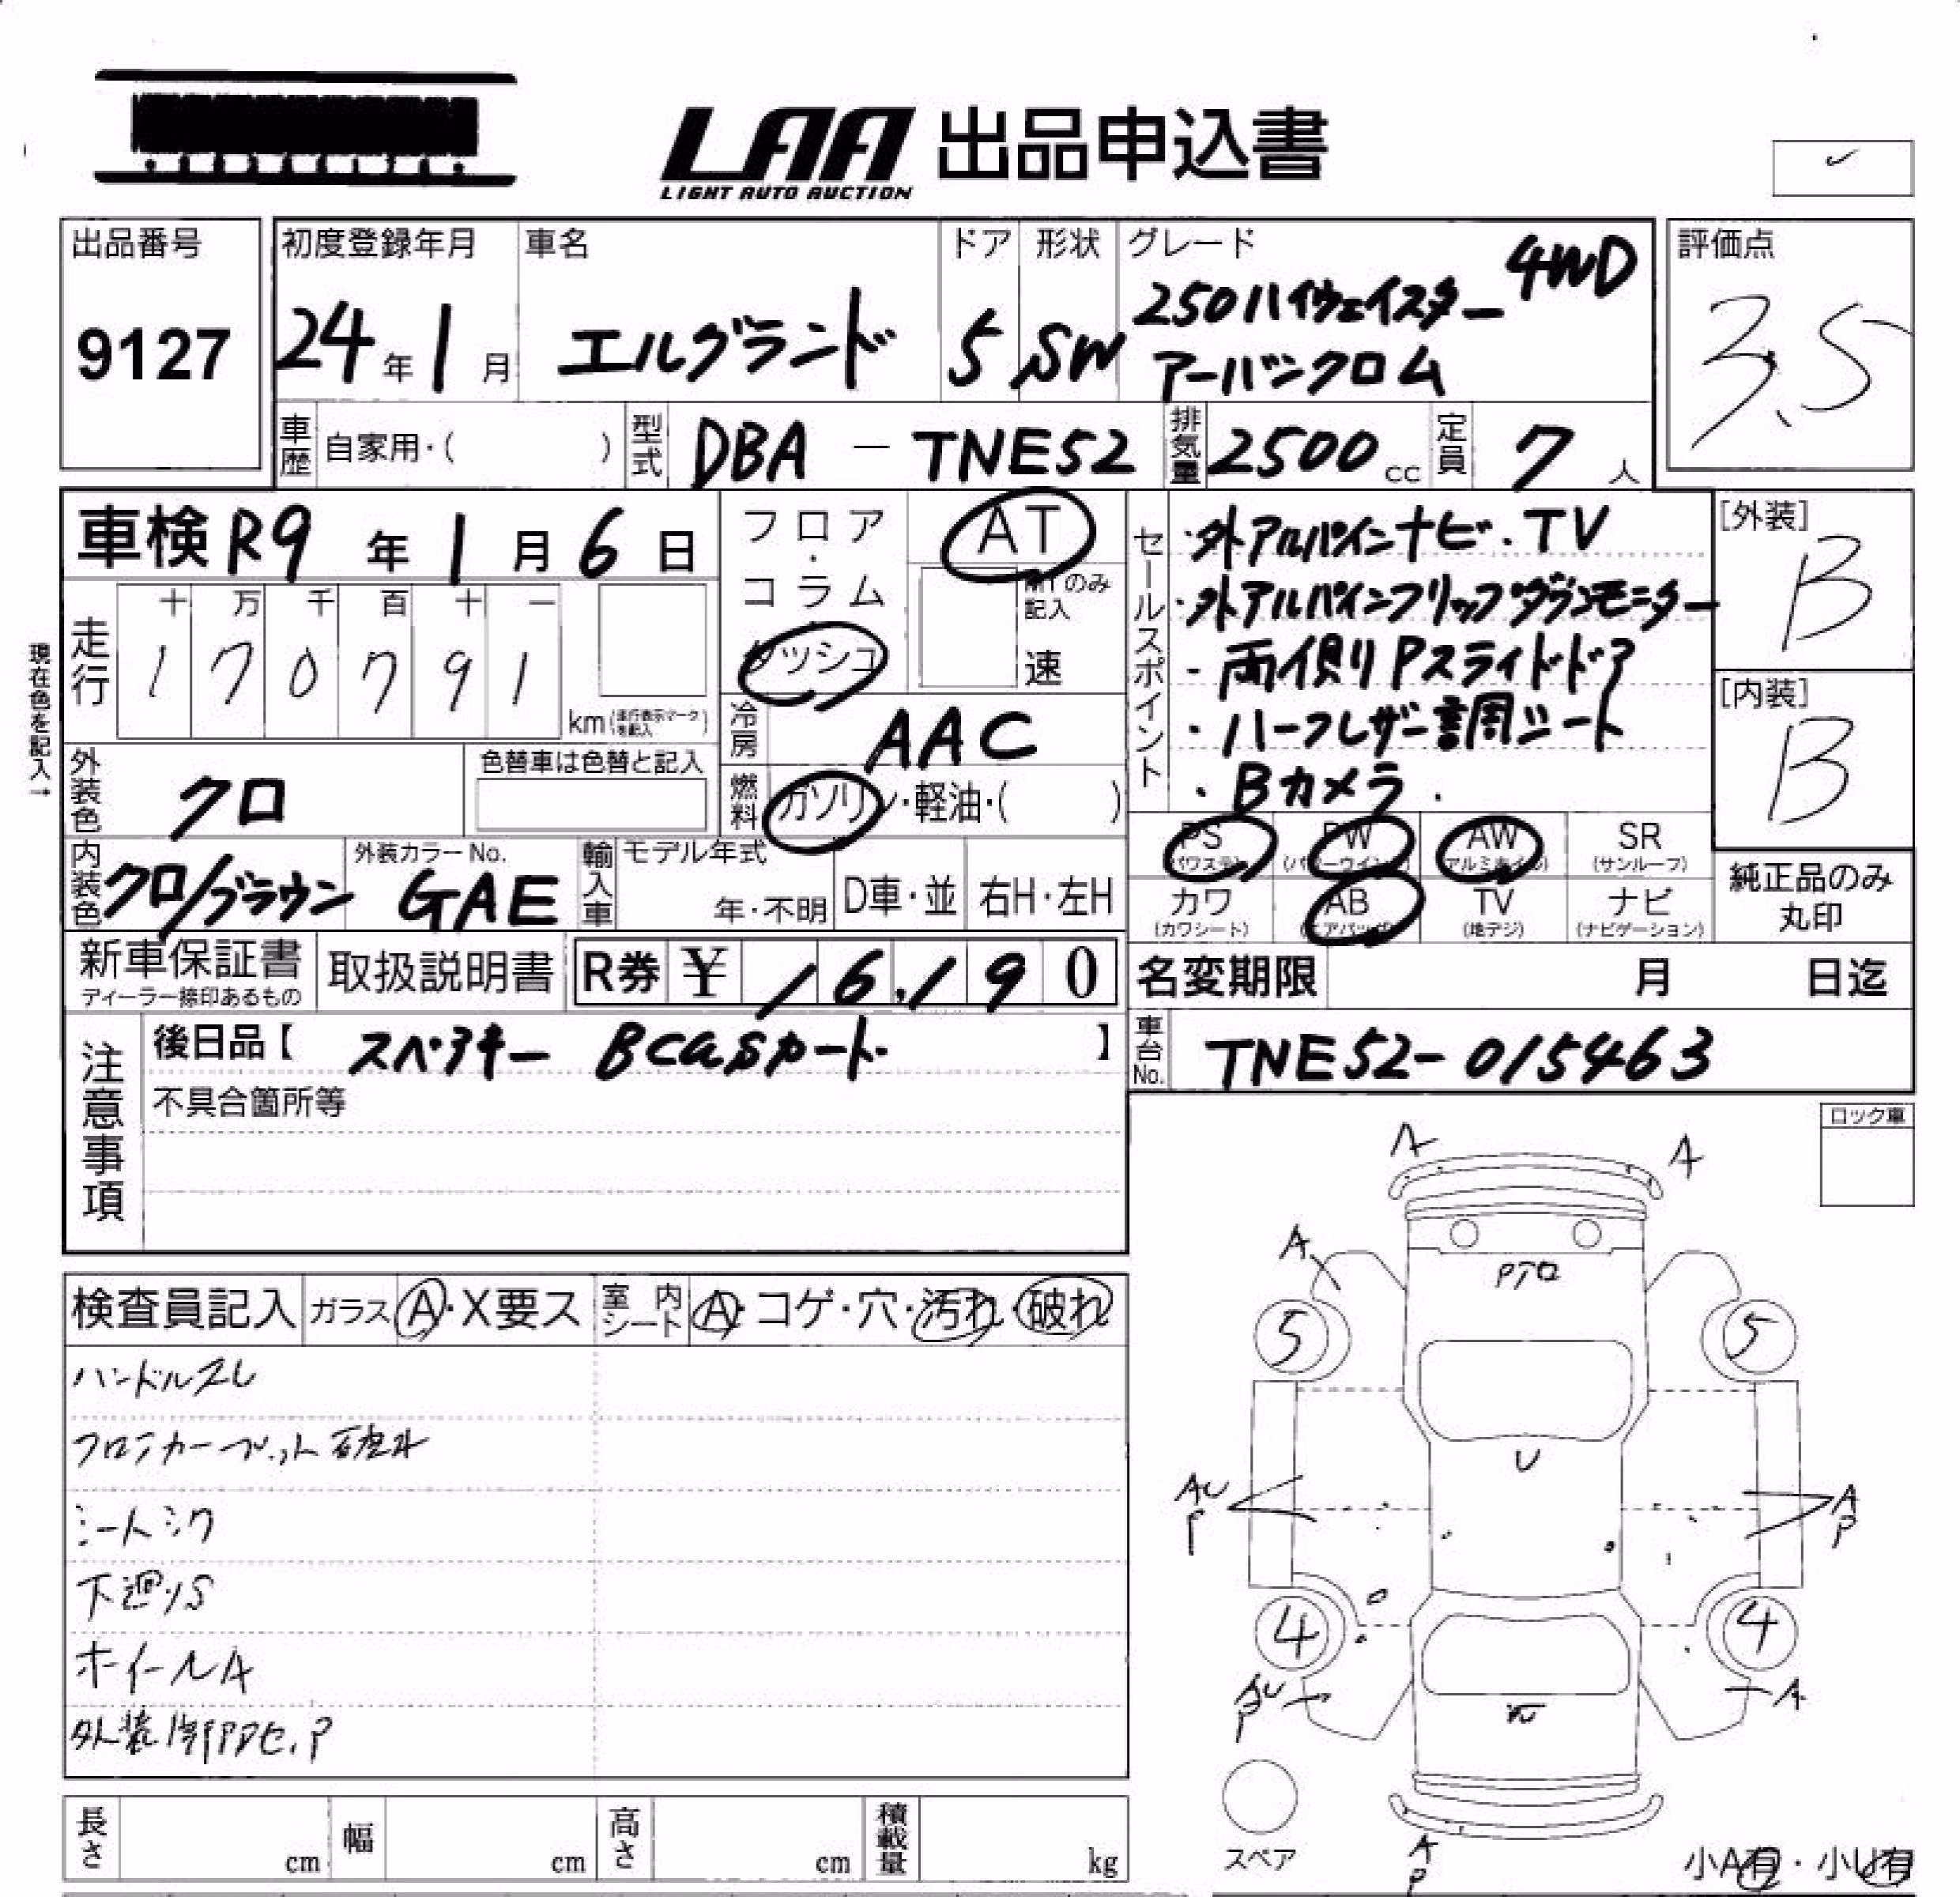 LAA 出品申込書
LIGHT AUTO AUCTION
出品番号
9127
初度登録年月
24年1月
車名
エルグランド
ドア
5
形状
SW
グレード
250ハイウェイスター 4WD
アーバンクロム
評価点
3.5
車歴 自家用・( )
型式 DBA-TNE52
排気量 2500cc
定員 7人
車検 R9年1月6日
フロア・コラム
ダッシュ
AT
MTのみ記入
速
セールスポイント
・外アルパインナビ・TV
・外アルパインフリップダウンモニター
・両側Pスライドドア
・ハーフレザー調シート
・Bカメラ.
[外装]
B
[内装]
B
現在色を記入→
走行
十 万 千 百 十 一
1 7 0 7 9 1
km(走行表示マークを記入)
冷房 AAC
燃料 ガソリン・軽油・( )
外装色 クロ
色替車は色替と記入
内装色 クロ/ブラウン
外装カラーNo.
GAE
輸入車
モデル年式
年・不明
D車・並
右H・左H
PS
(パワステ)
PW
(パワーウインド)
AW
(アルミホイル)
SR
(サンルーフ)
カワ
(カワシート)
AB
(エアバッグ)
TV
(地デジ)
ナビ
(ナビゲーション)
純正品のみ
丸印
新車保証書
ディーラー捺印あるもの
取扱説明書
R券 ¥ 16,190
名変期限 月 日迄
注意事項
後日品【 スペアキー BCaSカード 】
不具合箇所等
車台No. TNE52-015463
ロック車
検査員記入
ガラス A・X要ス
室内シート A・コゲ・穴・汚れ・破れ
ハンドルスレ
フロアカーペット破れ
シートシワ
下廻りS
ホイールA
外装時PDセ.P
A
A
A
Pアロ
5
5
U
AU
P
A
P
4
4
AU
P
A
A
P
スペア
小A有・小U有
長さ cm
幅 cm
高さ cm
積載量 kg